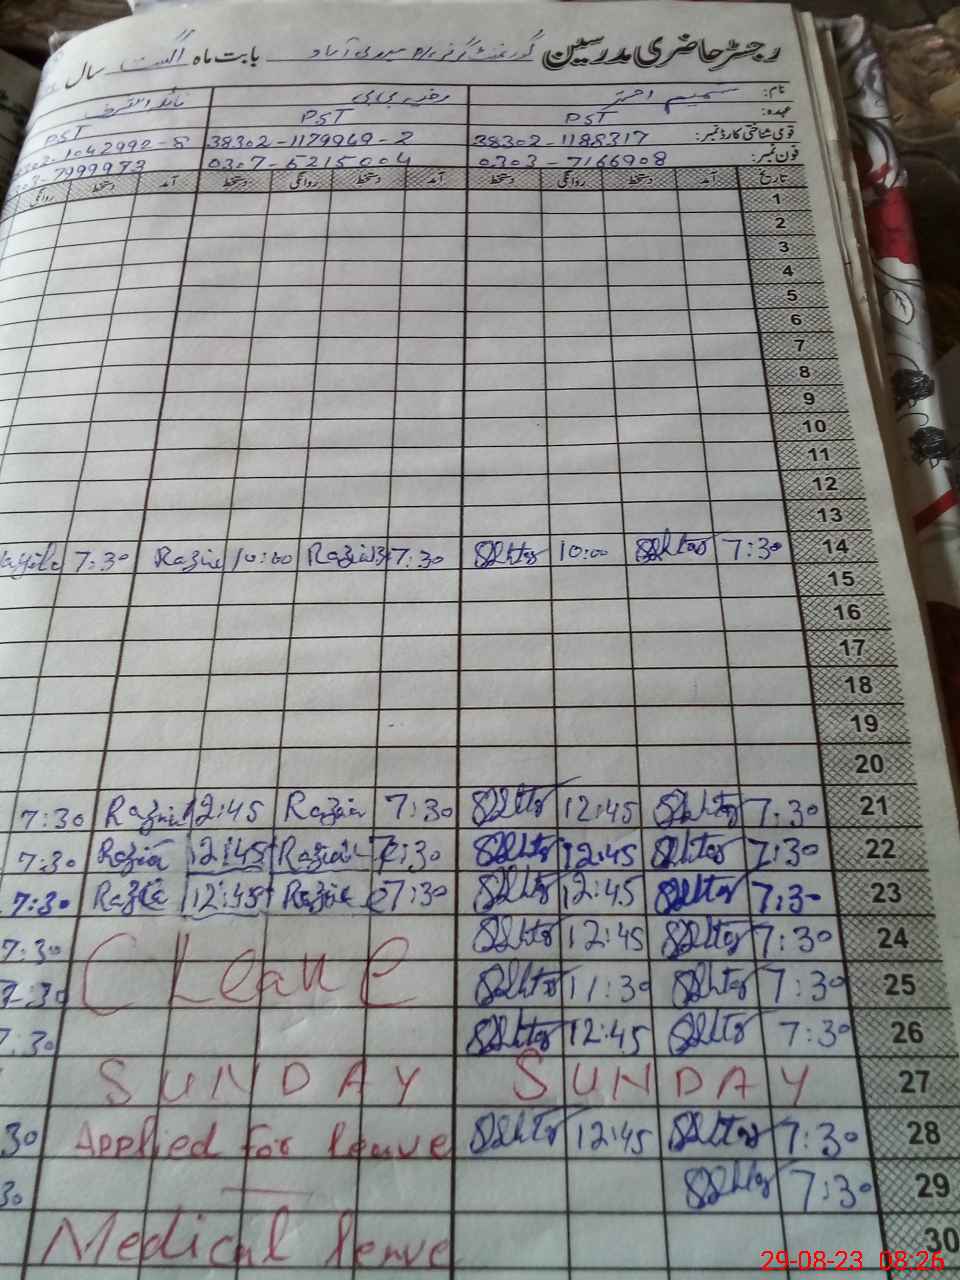 رجسٹر حاضری مدرسین گورنمنٹ گرلز بابت ماہ اگست سال
نام: شمیم اختر رضیہ بی بی
عہدہ: PST PST PST
قومی شناختی کارڈ نمبر: 38302-1188317 38302-1179969-2 1042992-8
فون نمبر: 0303-7166908 0307-6215004 7999973
تاریخ آمد دستخط روانگی دستخط آمد دستخط روانگی دستخط آمد دستخط روانگی
1
2
3
4
5
6
7
8
9
10
11
12
13
14 7:30 SAkhtar 10:00 SAkhtar 7:30 Razia 10:00 Razia 7:30
15
16
17
18
19
20
21 7:30 SAkhtar 12:45 SAkhtar 7:30 Razia 12:45 Razia 7:30
22 7:30 SAkhtar 12:45 SAkhtar 7:30 Razia 12:45 Razia 7:30
23 7:30 SAkhtar 12:45 SAkhtar 7:30 Razia 12:45 Razia 7:30
24 7:30 SAkhtar 12:45 SAkhtar 7:30
C Leave
25 7:30 SAkhtar 11:30 SAkhtar 7:30
26 7:30 SAkhtar 12:45 SAkhtar 7:30
27 SUNDAY SUNDAY
28 7:30 SAkhtar 12:45 SAkhtar Applied for leave 30
29 7:30 SAkhtar 30
30 Medical leave
29-08-23 08:26